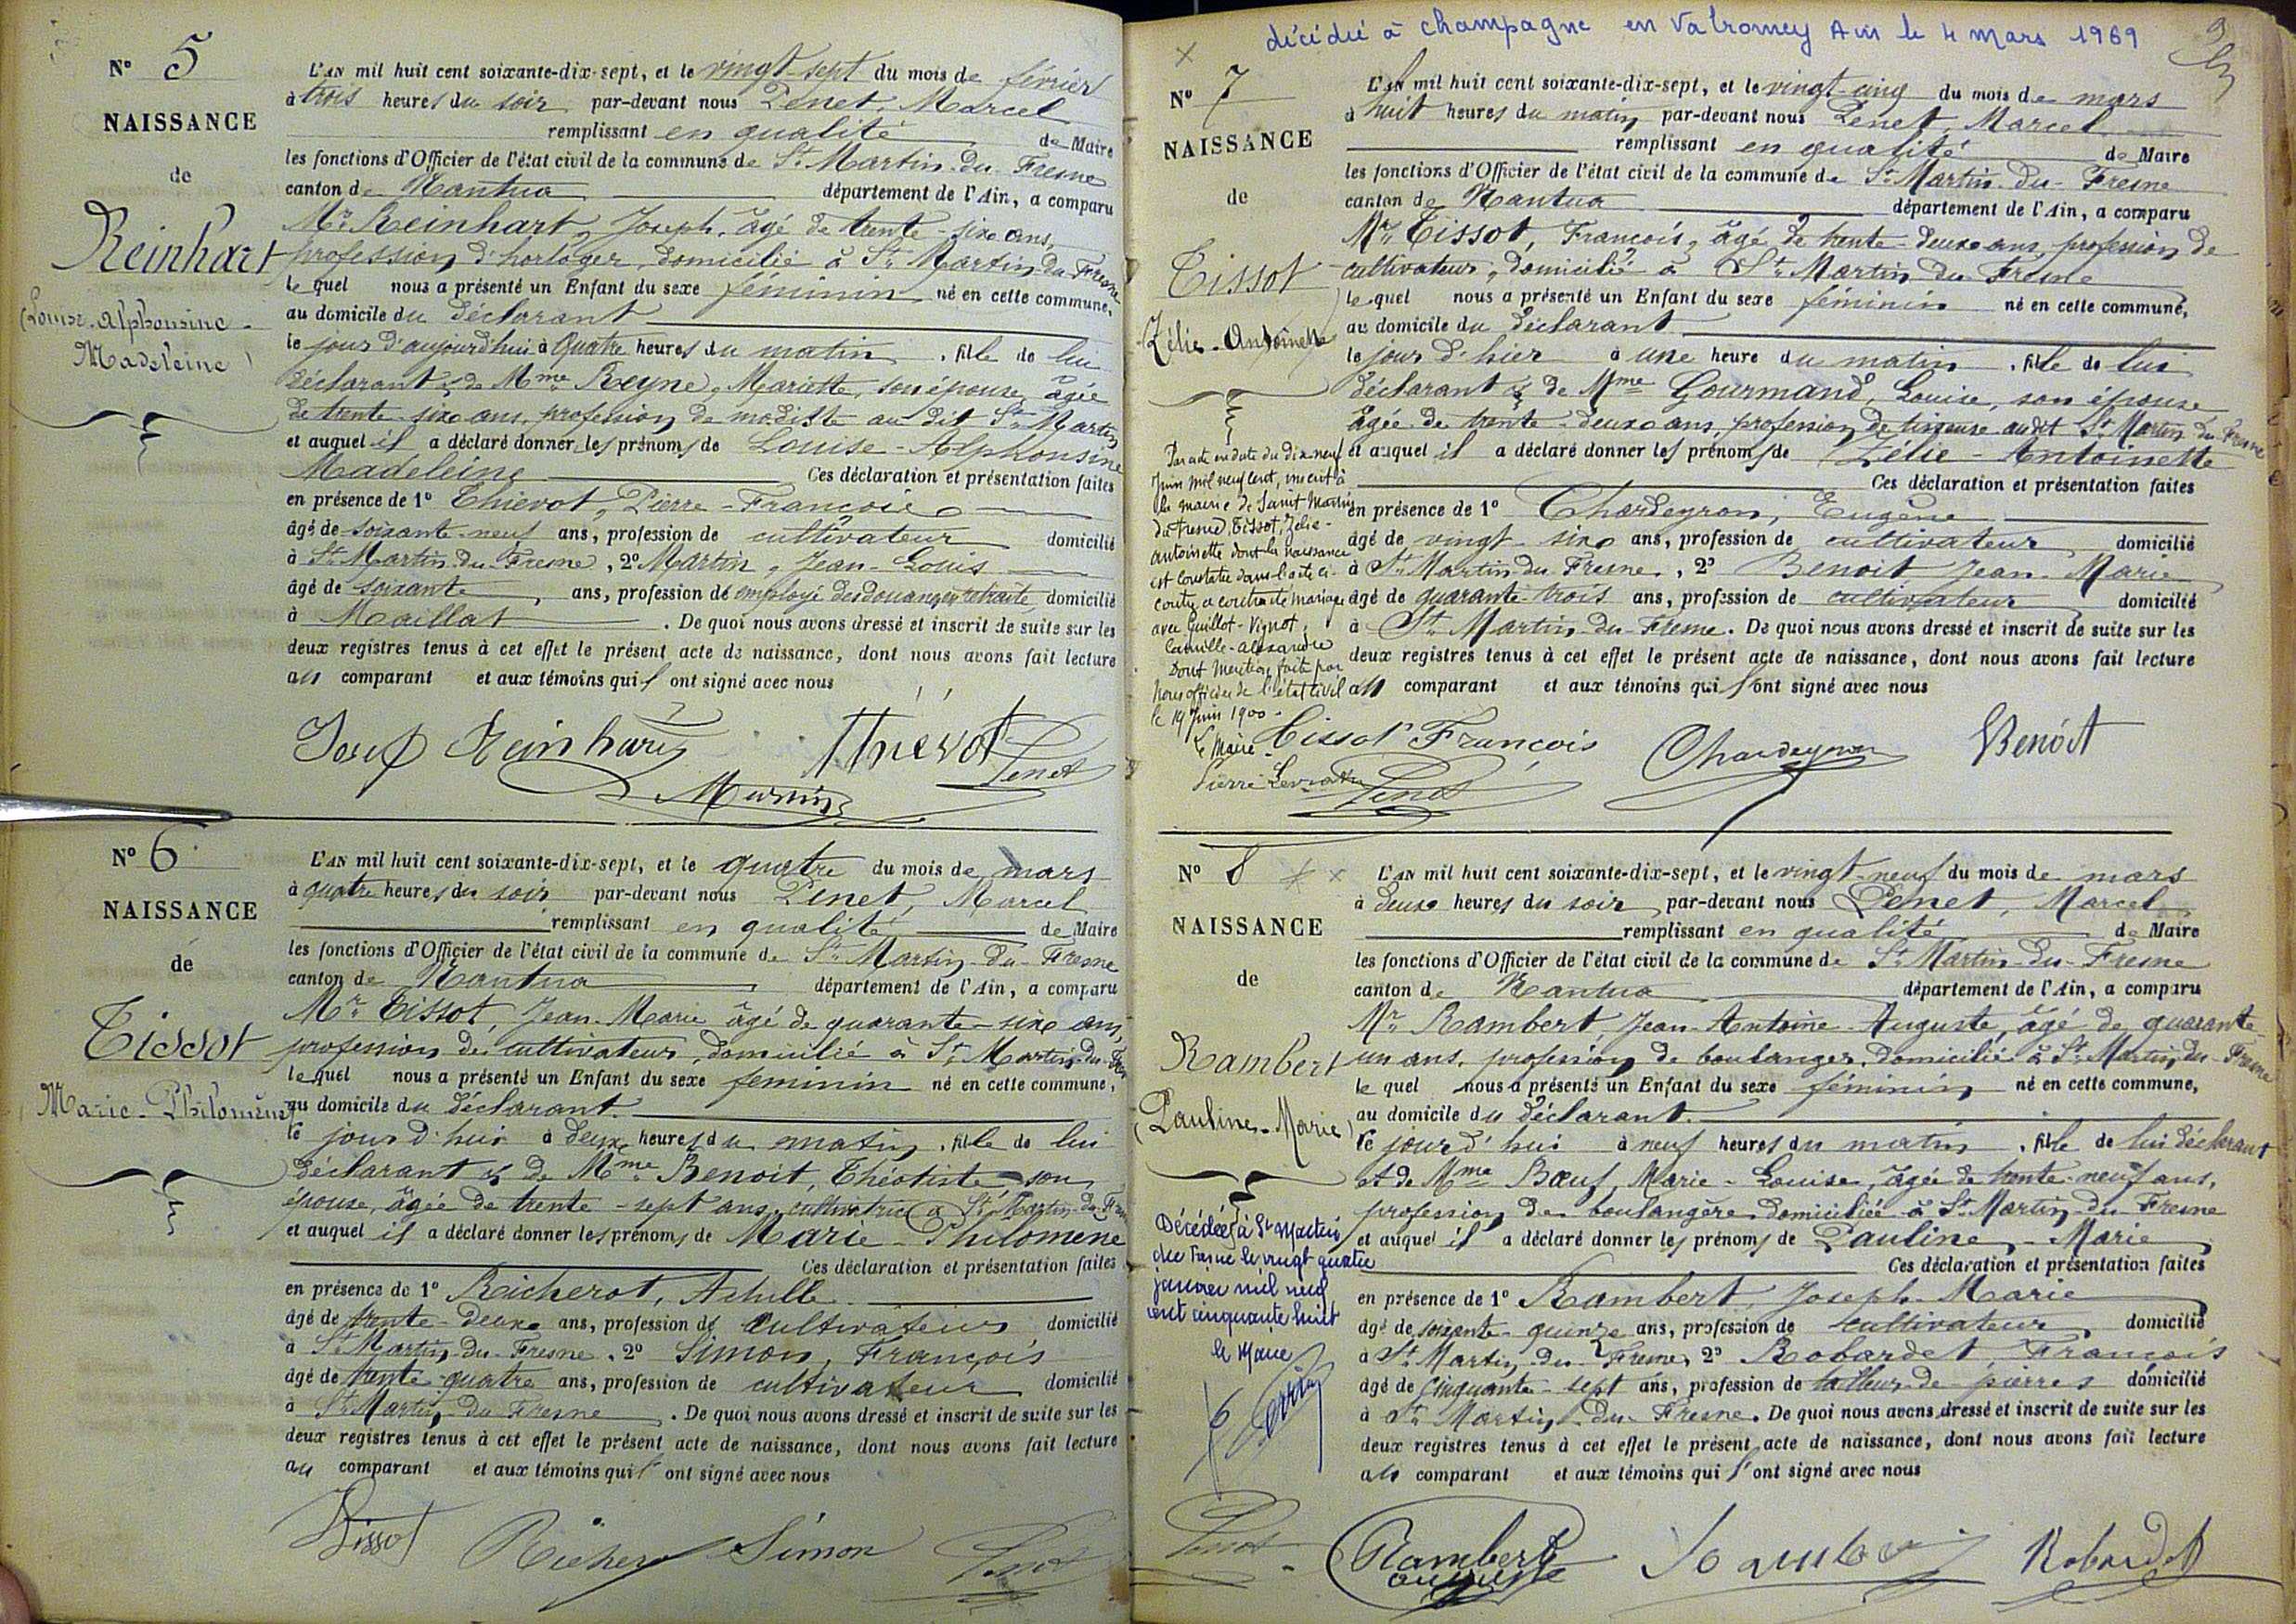 N° 5
NAISSANCE
de
Reinhart
(Louise-Alphonsine-
Madeleine)
L'AN mil huit cent soixante-dix-sept, et le vingt-sept du mois de février
à trois heures du soir par-devant nous Penet, Marcel
remplissant en qualité de Maire
les fonctions d'Officier de l'état civil de la commune de St Martin-du-Fresne
canton de Nantua département de l'Ain, a comparu
Mr Reinhart, Joseph, âgé de trente-six ans,
profession d'horloger, domicilié à St Martin du Fresne
lequel nous a présenté un Enfant du sexe féminin né en cette commune,
au domicile du déclarant
le jour d'aujourd'hui à quatre heures du matin, fille de lui
déclarant & de Mme Reyne, Mariette, son épouse, âgée
de trente-six ans, profession de modiste au dit St Martin
et auquel il a déclaré donner les prénoms de Louise-Alphonsine
Madeleine Ces déclaration et présentation faites
en présence de 1° Thievot, Pierre-François
âgé de soixante-neuf ans, profession de cultivateur domicilié
à St Martin-du-Fresne, 2° Martin, Jean-Louis
âgé de soixante ans, profession de employé des douanes, retraité domicilié
à Maillat. De quoi nous avons dressé et inscrit de suite sur les
deux registres tenus à cet effet le présent acte de naissance, dont nous avons fait lecture
au comparant et aux témoins qui ont signé avec nous
Josef Reinhart Thievot
Penet
Martin
N° 6
NAISSANCE
de
Tissot
Marie-Philomène
L'AN mil huit cent soixante-dix-sept, et le quatre du mois de mars
à quatre heures du soir par-devant nous Penet, Marcel
remplissant en qualité de Maire
les fonctions d'Officier de l'état civil de la commune de St Martin-du-Fresne
canton de Nantua département de l'Ain, a comparu
Mr Tissot, Jean-Marie âgé de quarante-six ans,
profession de cultivateur, domicilié à St Martin-du-Fres
lequel nous a présenté un Enfant du sexe feminin né en cette commune,
au domicile du déclarant.
le jour d'hui à deux heures du matin, fille de lui
déclarant & de Mme Benoit, Théotiste son
épouse, âgée de trente-sept ans, cultivatrice à St Martin-du-Fres
et auquel il a déclaré donner les prénoms de Marie-Philomene
Ces déclaration et présentation faites
en présence de 1° Richerot, Achille
âgé de trente-deux ans, profession de cultivateur domicilié
à St Martin-du-Fresne, 2° Simon, François
âgé de trente-quatre ans, profession de cultivateur domicilié
à St Martin-du-Fresne. De quoi nous avons dressé et inscrit de suite sur les
deux registres tenus à cet effet le présent acte de naissance, dont nous avons fait lecture
au comparant et aux témoins qui ont signé avec nous
Tissot Richer Simon Penet
décédée à Champagne en Valromey Ain le 4 mars 1969
N° 7
NAISSANCE
de
Tissot
Zélie-Antoinette
L'AN mil huit cent soixante-dix-sept, et le vingt-cinq du mois de mars
à huit heures du matin par-devant nous Penet, Marcel
remplissant en qualité de Maire
les fonctions d'Officier de l'état civil de la commune de St Martin-du-Fresne
canton de Nantua département de l'Ain, a comparu
Mr Tissot, François, âgé de trente-deux ans, profession de
cultivateur, domicilié à St Martin du Fresne
lequel nous a présenté un Enfant du sexe féminin né en cette commune,
au domicile du déclarant
le jour d'hier à une heure du matin, fille de lui
déclarant & de Mme Gourmand, Louise, son épouse
âgée de trente-deux ans, profession de tisseuse audit St Martin du Fresne
et auquel il a déclaré donner les prénoms de Zélie-Antoinette
Ces déclaration et présentation faites
en présence de 1° Chardeyron, Eugène
âgé de vingt-six ans, profession de cultivateur domicilié
à St Martin du Fresne, 2° Benoit Jean-Marie
âgé de quarante-trois ans, profession de cultivateur domicilié
à St Martin-du-Fresne. De quoi nous avons dressé et inscrit de suite sur les
deux registres tenus à cet effet le présent acte de naissance, dont nous avons fait lecture
au comparant et aux témoins qui ont signé avec nous
Par acte en date du dix neuf
Juin mil neuf cent, inscrit à
la mairie de Saint Martin
du Fresne, Tissot, Zelie-
antoinette dont la naissance
est constatée dans l'acte ci-
contre a contracté mariage
avec Guillot-Vignot,
Camille-alexandre
Dont mention faite par
nous officier de l'état civil
le 19 Juin 1900-
Le Maire-
Tissot François Chardeyron Benoit
Penet
N° 8
NAISSANCE
de
Rambert
(Pauline-Marie)
L'AN mil huit cent soixante-dix-sept, et le vingt-neuf du mois de mars
à deux heures du soir par-devant nous Penet, Marcel
remplissant en qualité de Maire
les fonctions d'Officier de l'état civil de la commune de St Martin-du-Fresne
canton de Nantua département de l'Ain, a comparu
Mr Rambert, Jean-Antoine-Auguste, âgé de quarante
un ans, profession de boulanger, domicilié à St Martin-du-Fresne
lequel nous a présenté un Enfant du sexe féminin né en cette commune,
au domicile du déclarant.
le jour d'hui à neuf heures du matin, fille de lui déclarant
et de Mme Bœuf, Marie-Louise, âgée de trente-neuf ans,
profession de boulangère domiciliée à St Martin-du-Fresne
et auquel il a déclaré donner les prénoms de Pauline-Marie
Ces déclaration et présentation faites
en présence de 1° Rambert, Joseph-Marie
âgé de soixante-quinze ans, profession de cultivateur domicilié
à St Martin-du-Fresne, 2° Robardet, François
âgé de cinquante-sept ans, profession de tailleur de pierres domicilié
à St Martin-du-Fresne. De quoi nous avons dressé et inscrit de suite sur les
deux registres tenus à cet effet le présent acte de naissance, dont nous avons fait lecture
au comparant et aux témoins qui ont signé avec nous
Décédée à St Martin
du Fresne le vingt quatre
janvier mil neuf
cent cinquante huit
le Maire
Penet Rambert Rambert Robardet
auguste